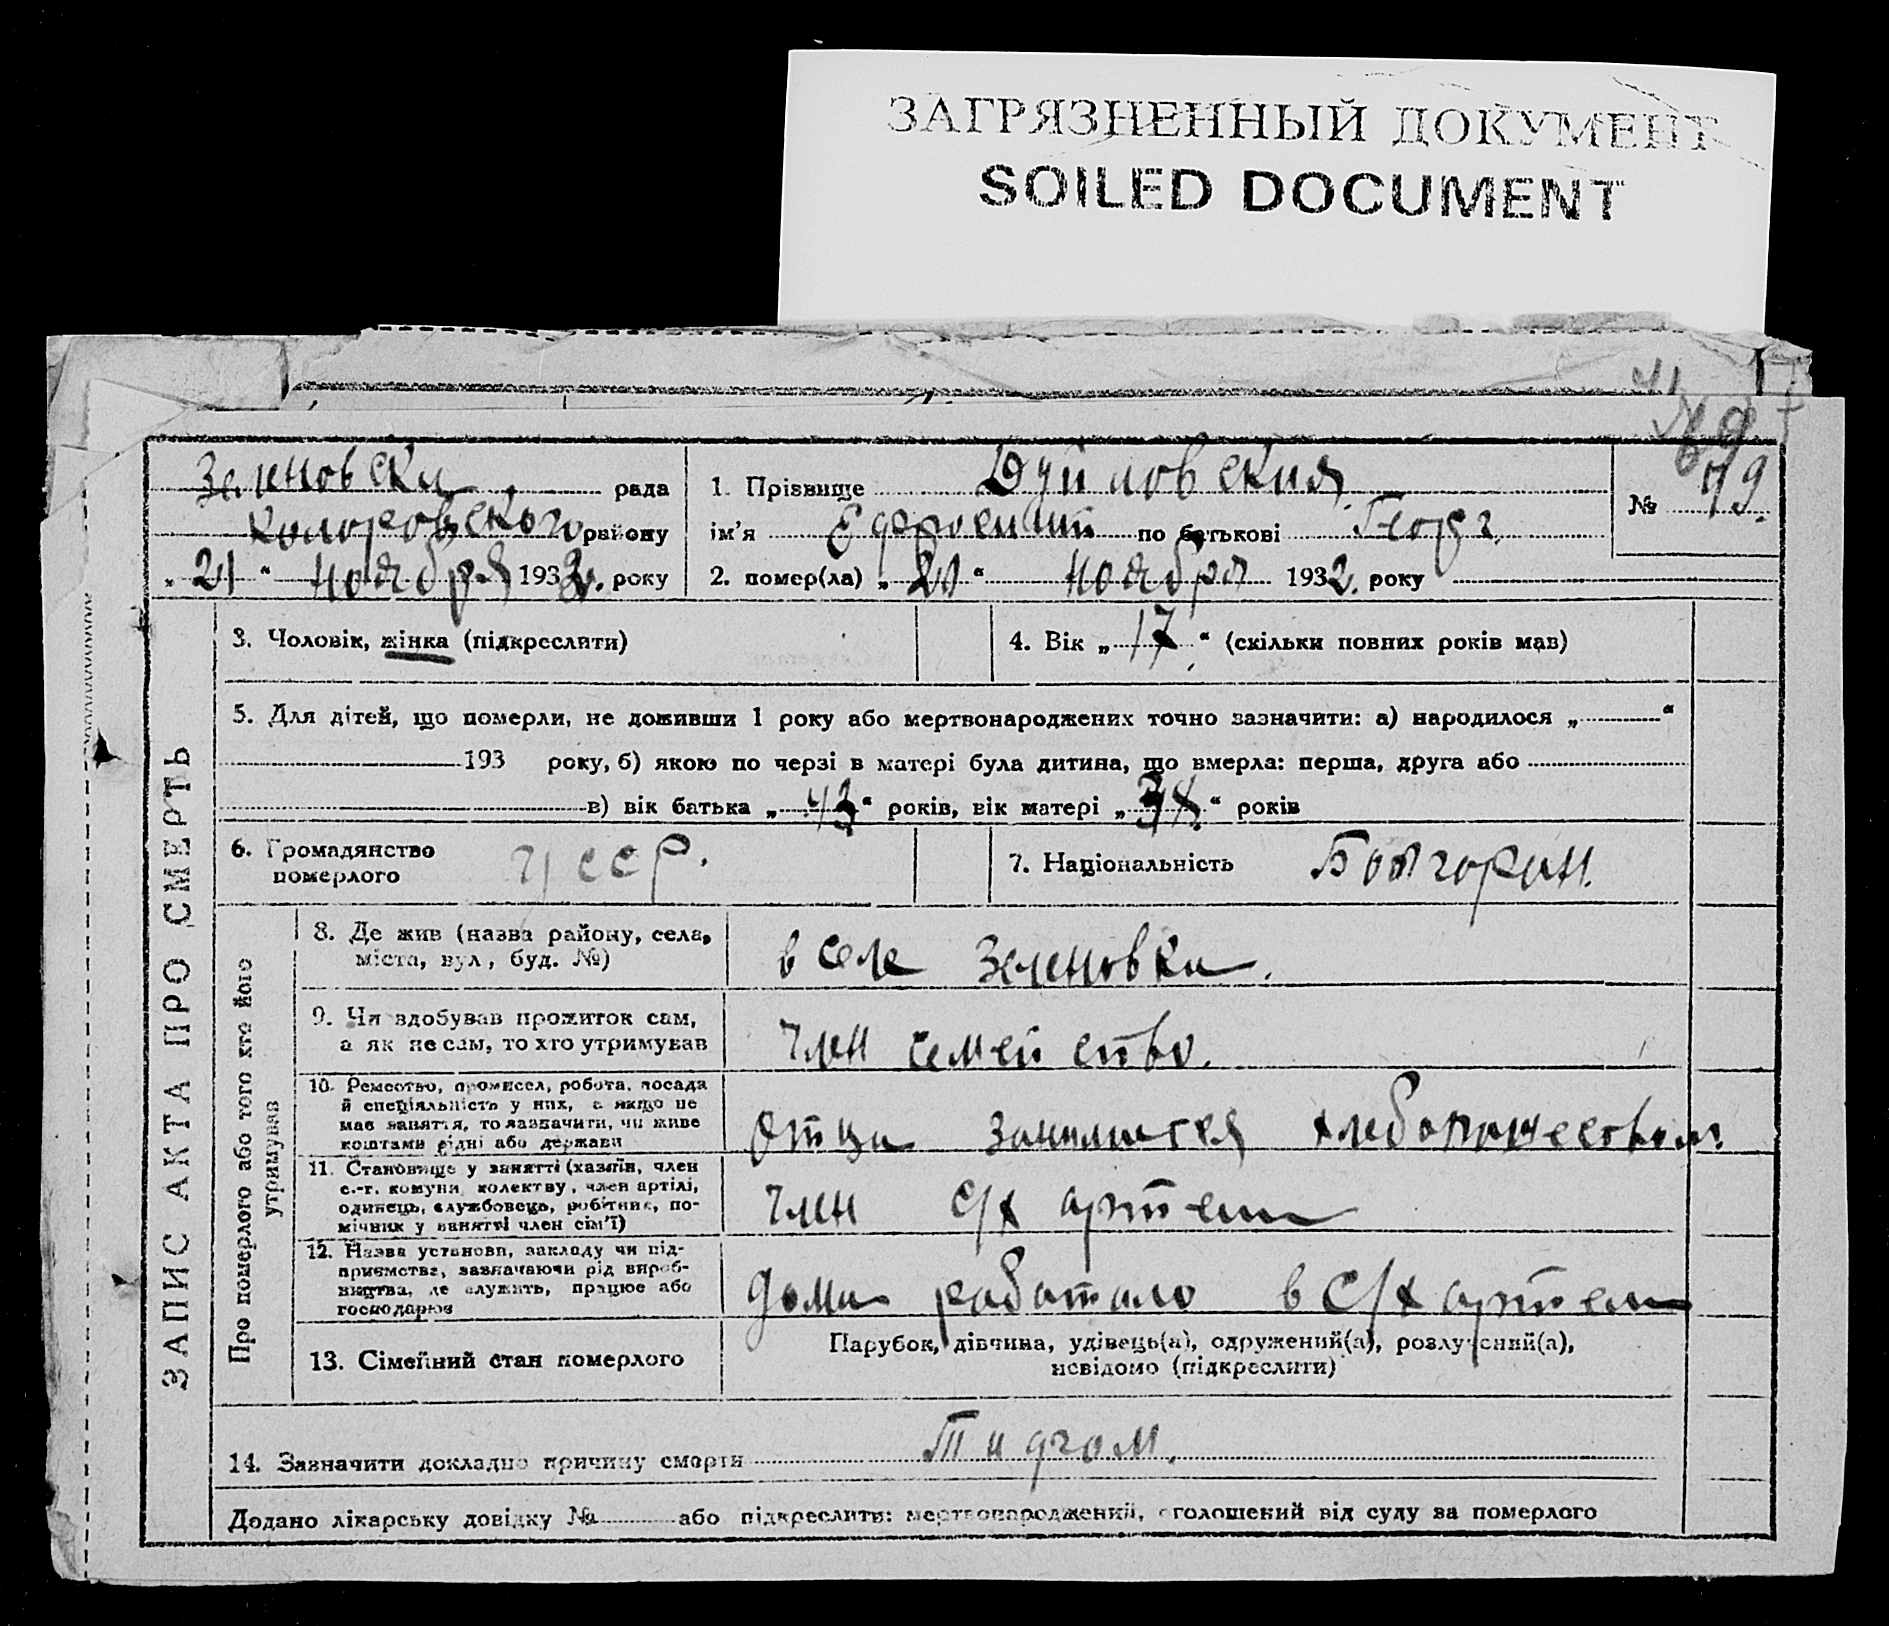 ЗАГРЯЗНЕННЫЙ ДОКУМЕНТ
SOILED DOCUMENT
ЗАПИС АКТА ПРО СМЕРТЬ
Зеленовски рада
району
„21“ ноября 1932. року
1. Прізвище Дуйловския
ім'я по батькові Георг.
2. помер(ла) „20“ ноября 1932. року
№ 79.
3. Чоловік, жінка (підкреслити)
4. Вік „17“ (скільки повних років мав)
5. Для дітей, що померли, не доживши 1 року або мертвонароджених точно зазначити: а) народилося „ “
193 року, б) якою по черзі в матері була дитина, що вмерла: перша, друга або
в) вік батька „43“ років, вік матері „38“ років
6. Громадянство
померлого
УССР.
7. Національність Болгорин.
Про померлого або того хто його
утримував
8. Де жив (назва району, села,
міста, вул, буд. №)
в селе Зеленовки.
9. Чи здобував прожиток сам,
а як не сам, то хто утримував
член семейство.
10. Ремество, промисел, робота, посада
й спеціяльність у них, а якщо не
має заняття, то зазначити, чи живе
коштами рідні або держави
Отца
11. Становище у занятті (хазяїн, член
с.-г. комуни, колектву, член артілі,
одинець, службовець, робітник, по-
мічник у занятті член сім'ї)
член с/х артели
12. Назва установи, закладу чи під-
приємства, зазначаючи рід вироб-
ництва, де служить, працює або
господарює
дома работало в с/х артели
13. Сімейний стан померлого
Парубок, дівчина, удівець(а), одружений(а), розлучений(а),
невідомо (підкреслити)
14. Зазначити докладно причину смерти
Додано лікарську довідку № або підкреслити: мертвонароджений, оголошений від суду за померлого